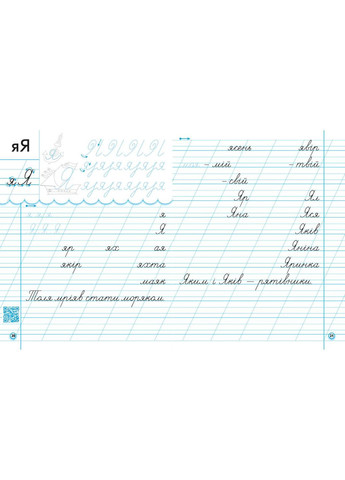 яЯ
Я Я Я Я Я
я я я я я я я
я я я я я я я
я Я
я я я я
Я
яр ях ая
якір яхта
маяк
Толя мріяв стати моряком.
ясень явір
- мій - твій
- свій
Яр Ял
Яна Яся
Яків
Яніна
Яринка
Яким і Яків — рятівники.